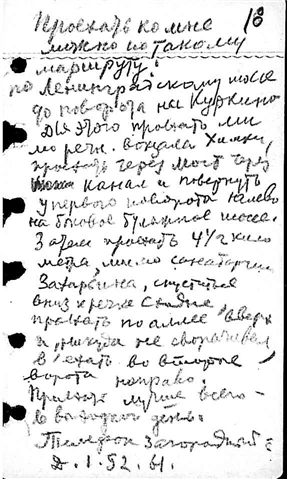 18
Проехать ко мне
можно по такому
маршруту:
по Ленинградскому шоссе
до поворота на Куркино
Для этого проехать ми
мо речн. вокзала Химки,
проехать через мост через
канал и повернуть
у первого поворота налево
на боковое булыжное шоссе.
Затем проехать 4 1/2 кило
метра, мимо санатория
Захарьина, спуститься
вниз к речке Сходне
проехать по аллее вверх
и, никуда не сворачивая,
въехать во вторые
ворота направо.
Приехать лучше всего –
в выходной день.
Телефон Загородный
Д. 1. 52. 61.